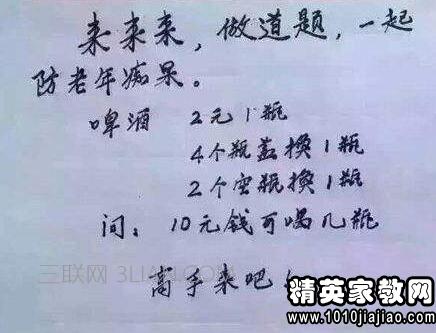 来来来，做道题，一起
防老年痴呆。
啤酒 2元1瓶
4个瓶盖换1瓶
2个空瓶换1瓶
问：10元钱可喝几瓶
高手来吧！
三联网 3LIAN.COM
精英家教网
www.1010jiajiao.com